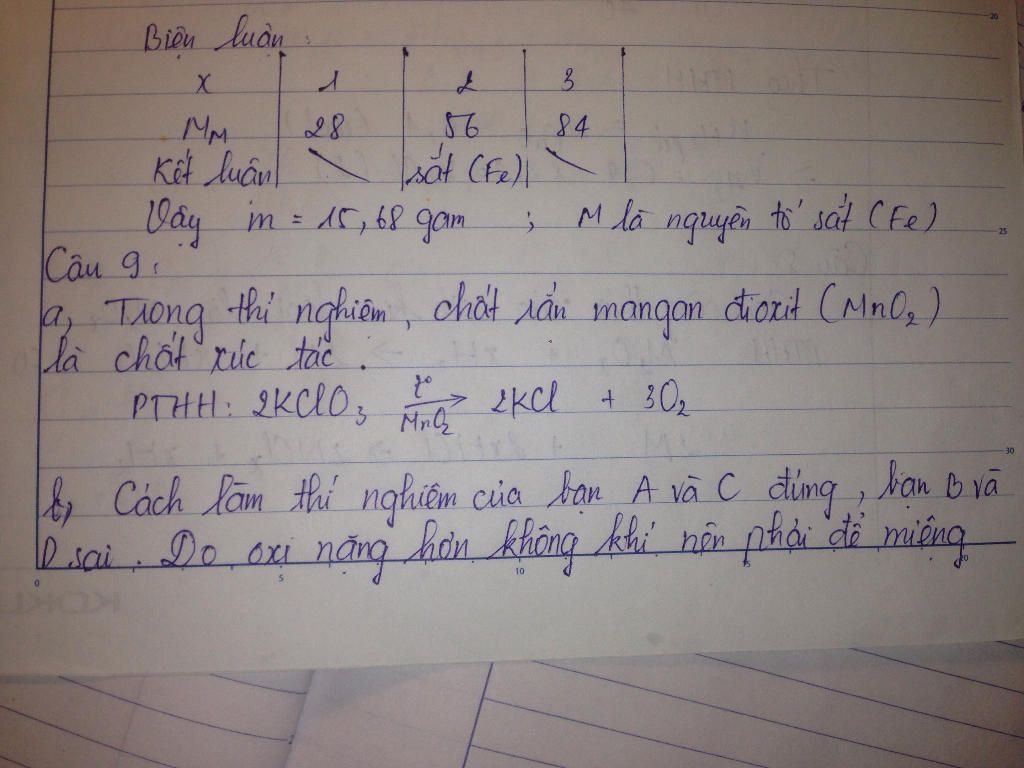 Biện luận:
x 1 2 3
MM 28 56 84
Kết luận \ sắt (Fe) \
Vậy m = 15,68 gam ; M là nguyên tố sắt (Fe)
Câu 9:
a, Trong thí nghiệm, chất rắn mangan đioxit (MnO2)
là chất xúc tác.
PTHH: 2KClO3 t° MnO2 → 2KCl + 3O2
b, Cách làm thí nghiệm của bạn A và C đúng, bạn B và
D sai. Do oxi nặng hơn không khí nên phải để miệng